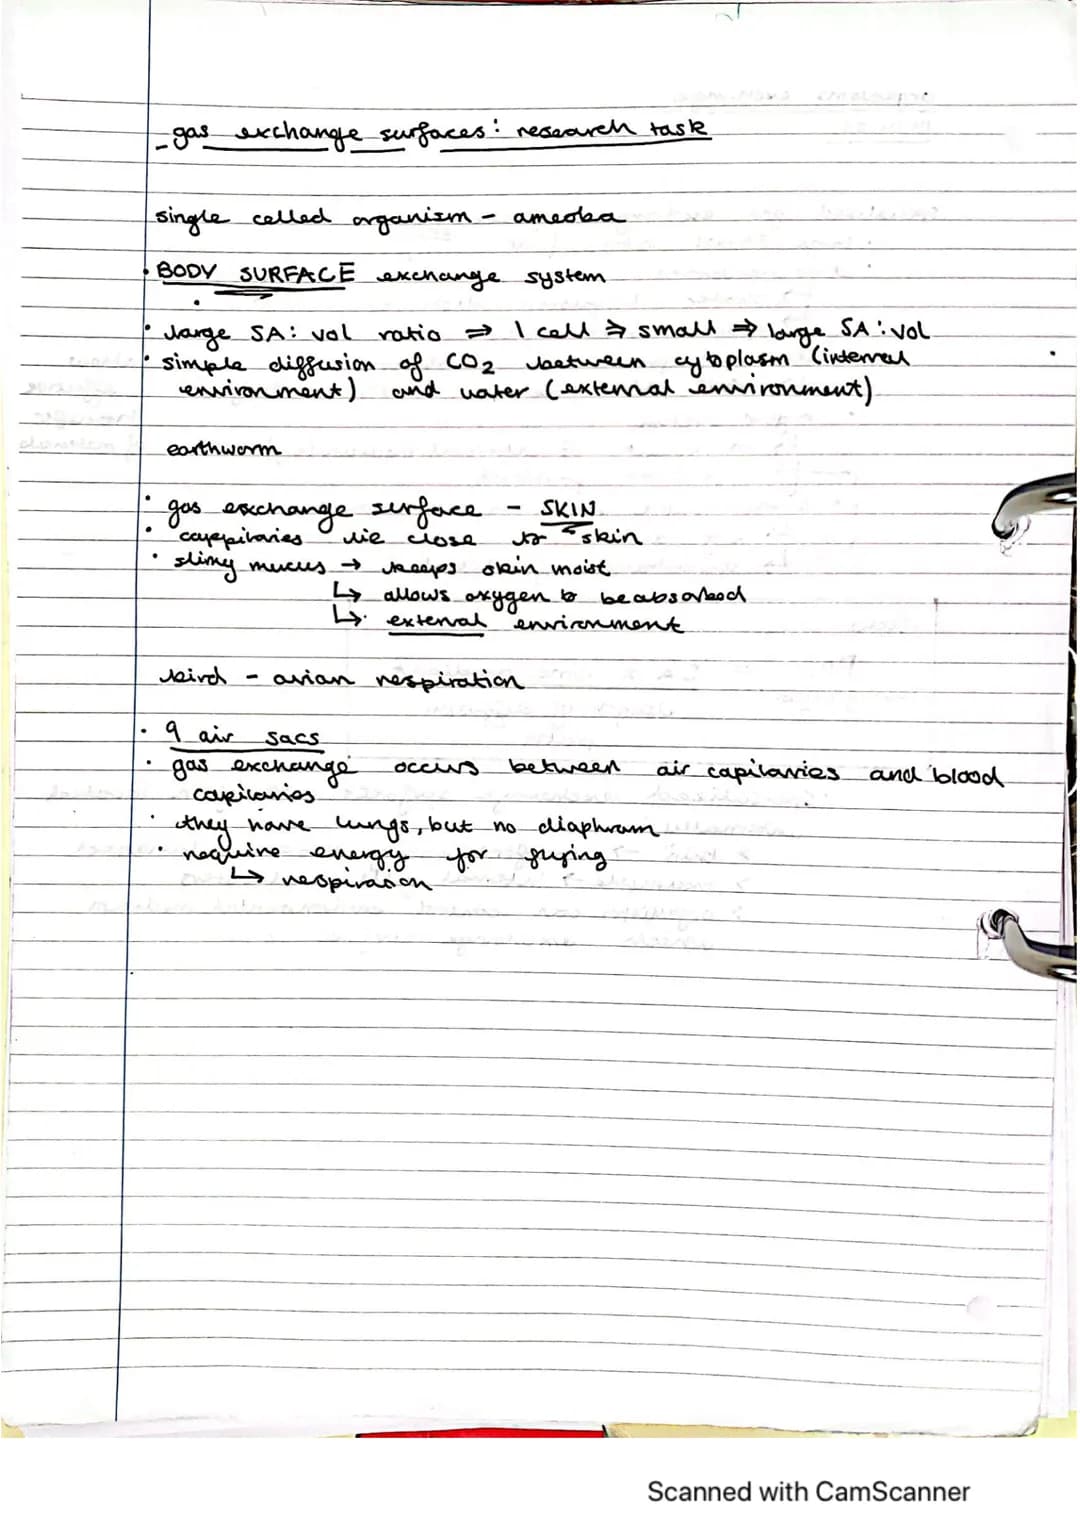 gas exchange surfaces: research task
single celled organism - ameoba
• BODY SURFACE exchange system
• large SA: vol ratio ⇒ 1 cell ⇒ small ⇒ large SA:vol
• simple diffusion of CO2 between cytoplasm (internal
environment) and water (external environment)
earthworm
• gas exchange surface - SKIN
• cappilaries lie close to skin
• slimy mucus → keeps skin moist
↳ allows oxygen to be absorbed
↳ external environment
bird - avian respiration
• 9 air sacs
• gas exchange occurs between air capilarries and blood
capilaries
• they have lungs, but no diaphram
• require energy for flying
↳ respiration
Scanned with CamScanner